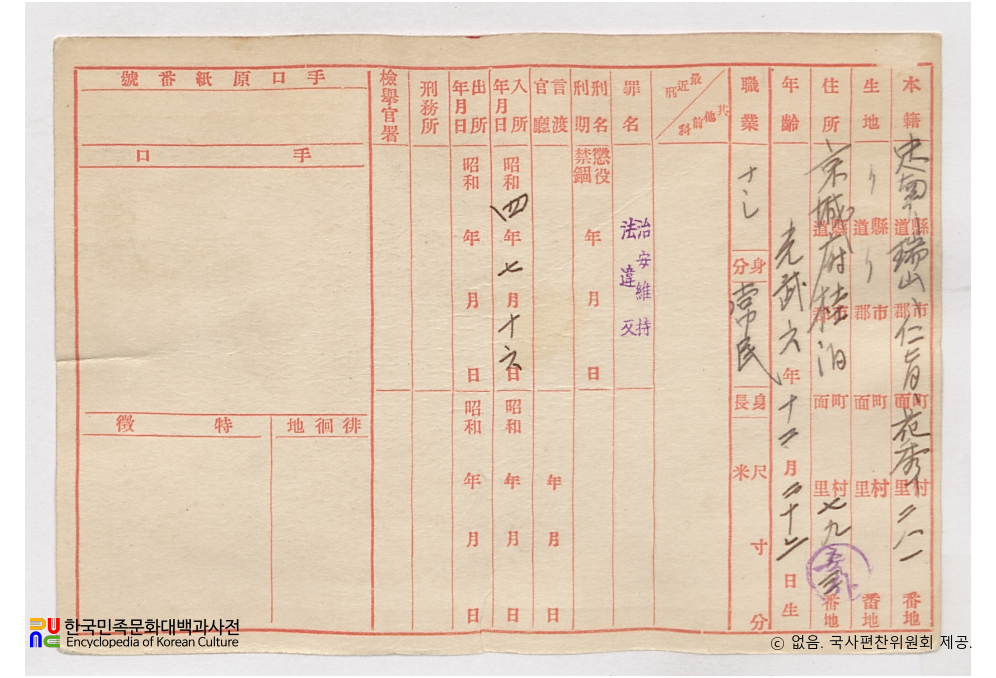 本籍 忠南 道縣 瑞山 市郡 仁旨 面町 花秀 里村 二八一 番地
生地 〃 道縣 〃 郡市 面町 里村 番地
住所 京城府桂洞 道縣 郡市 面町 里村 七九 番地
年齡 光武六年十二月二十 日生
職業 ナシ
身分 常民
身長 米尺 寸 分
最近刑 其他前科
罪名 治安維持法違反
刑名刑期 懲役禁錮 年 月 日
言渡官廳 年 月 日
入所年月日 昭和四年七月十六日 昭和 年 月 日
出所年月日 昭和 年 月 日 昭和 年 月 日
刑務所
檢擧官署
手口原紙番號
手口
徘徊地
特徵
한국민족문화대백과사전
Encyclopedia of Korean Culture
ⓒ 없음. 국사편찬위원회 제공.